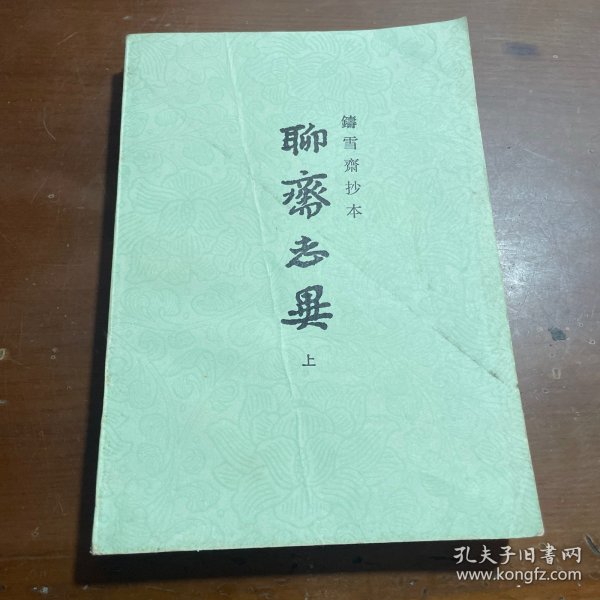 鑄雪齋抄本
聊齋志異
上
孔夫子旧書网
www.kongfz.com